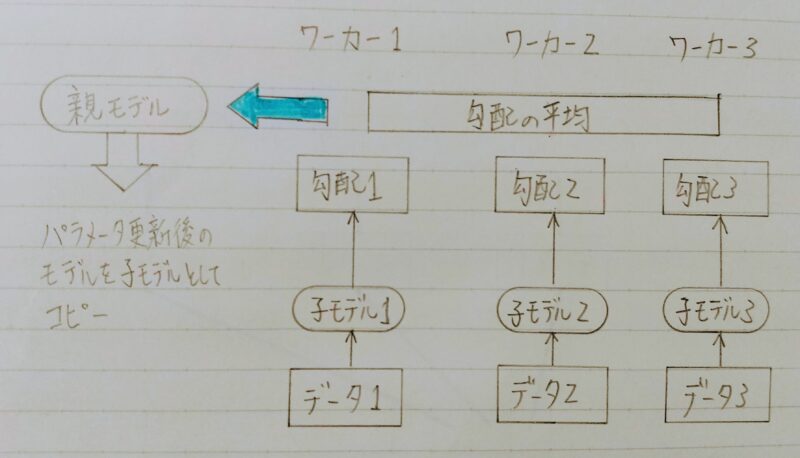 ワーカー1 ワーカー2 ワーカー3
親モデル
勾配の平均
勾配1 勾配2 勾配3
パラメータ更新後の
モデルを子モデルとして
コピー
子モデル1 子モデル2 子モデル3
データ1 データ2 データ3